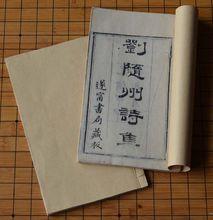 劉隨州詩集
遂甯書局藏板